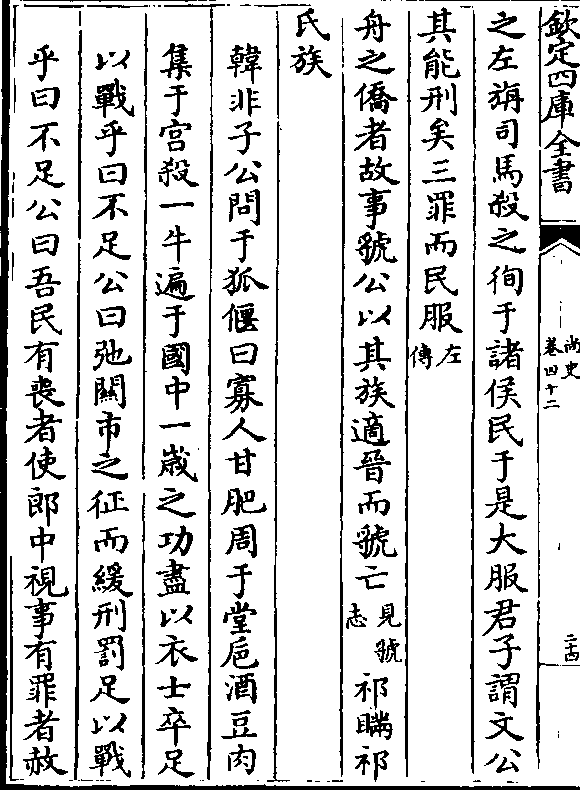 欽定四庫全書
尚史
卷四十二
二十四
之左旃司馬殺之徇于諸侯民于是大服君子謂文公
其能刑矣三罪而民服左傳
舟之僑者故事虢公以其族適晉而虢亡見虢志祁瞞祁
氏族
韓非子公問于狐偃曰寡人甘肥周于堂巵酒豆肉
集于宮殺一牛遍于國中一歲之功盡以衣士卒足
以戰乎曰不足公曰弛關市之征而緩刑罰足以戰
乎曰不足公曰吾民有喪者使郎中視事有罪者赦